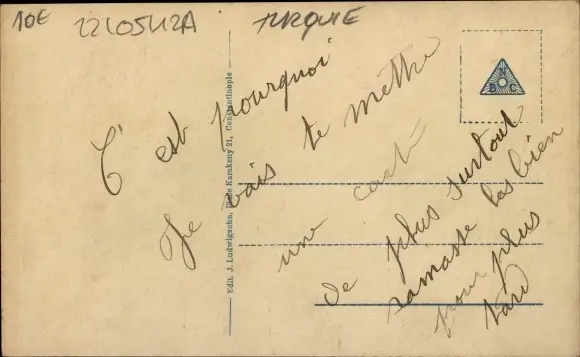 10E
22105412A
TURQUIE
C'est pourquoi
Je vais te mettre
une carte
de plus surtout
ramasse las bien
pour plus
tard
N
B C
Edit. J. Ludwigsohn, Rue de Karakeny 21, Constantinople